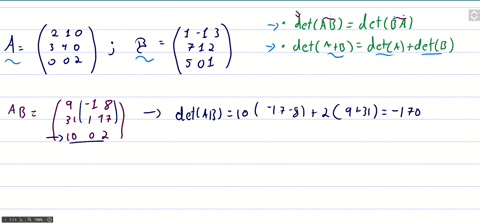 A = ( 2 1 0 ; B = ( 1 -1 3
3 4 0 7 1 2
0 0 2 ) 5 0 1 )
→ • det(AB) = det(BA)
→ • det(A+B) = det(A) + det(B)
AB = ( 9 -1 8
31 1 17
→ 10 0 2 ) → det(AB) = 10 ( -17 - 8 ) + 2 ( 9 + 31 ) = -170